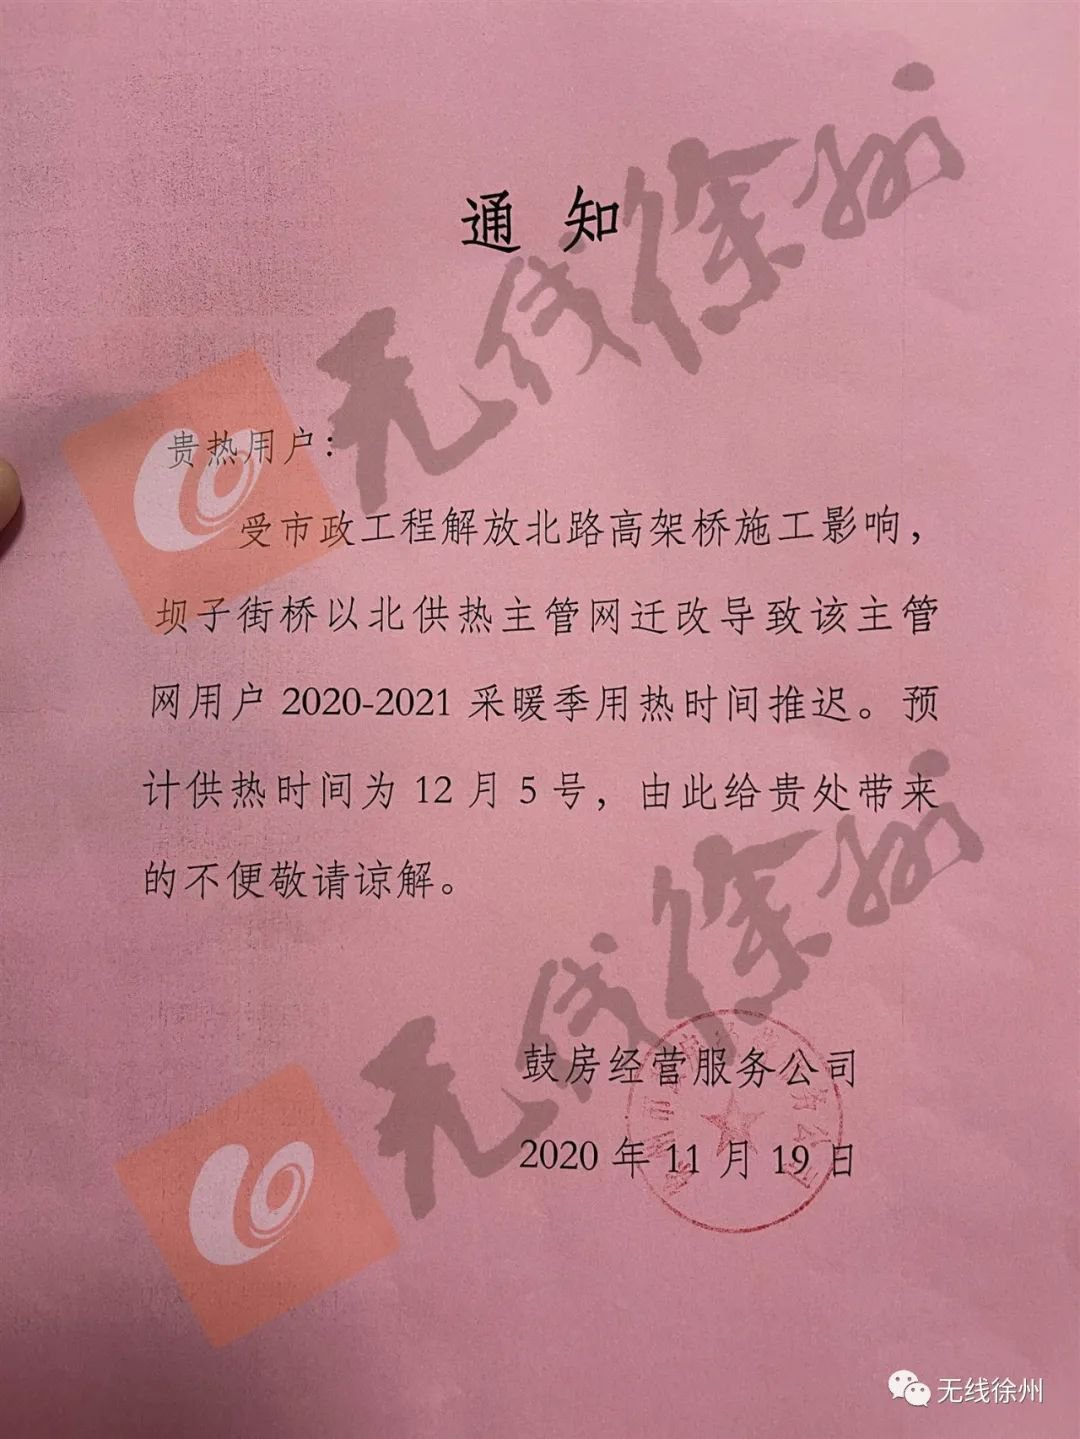 通 知
无线徐州
贵热用户：
受市政工程解放北路高架桥施工影响，
坝子街桥以北供热主管网迁改导致该主管
网用户 2020-2021 采暖季用热时间推迟。预
计供热时间为 12 月 5 号，由此给贵处带来
的不便敬请谅解。
无线徐州
鼓房经营服务公司
2020 年 11 月 19 日
无线徐州